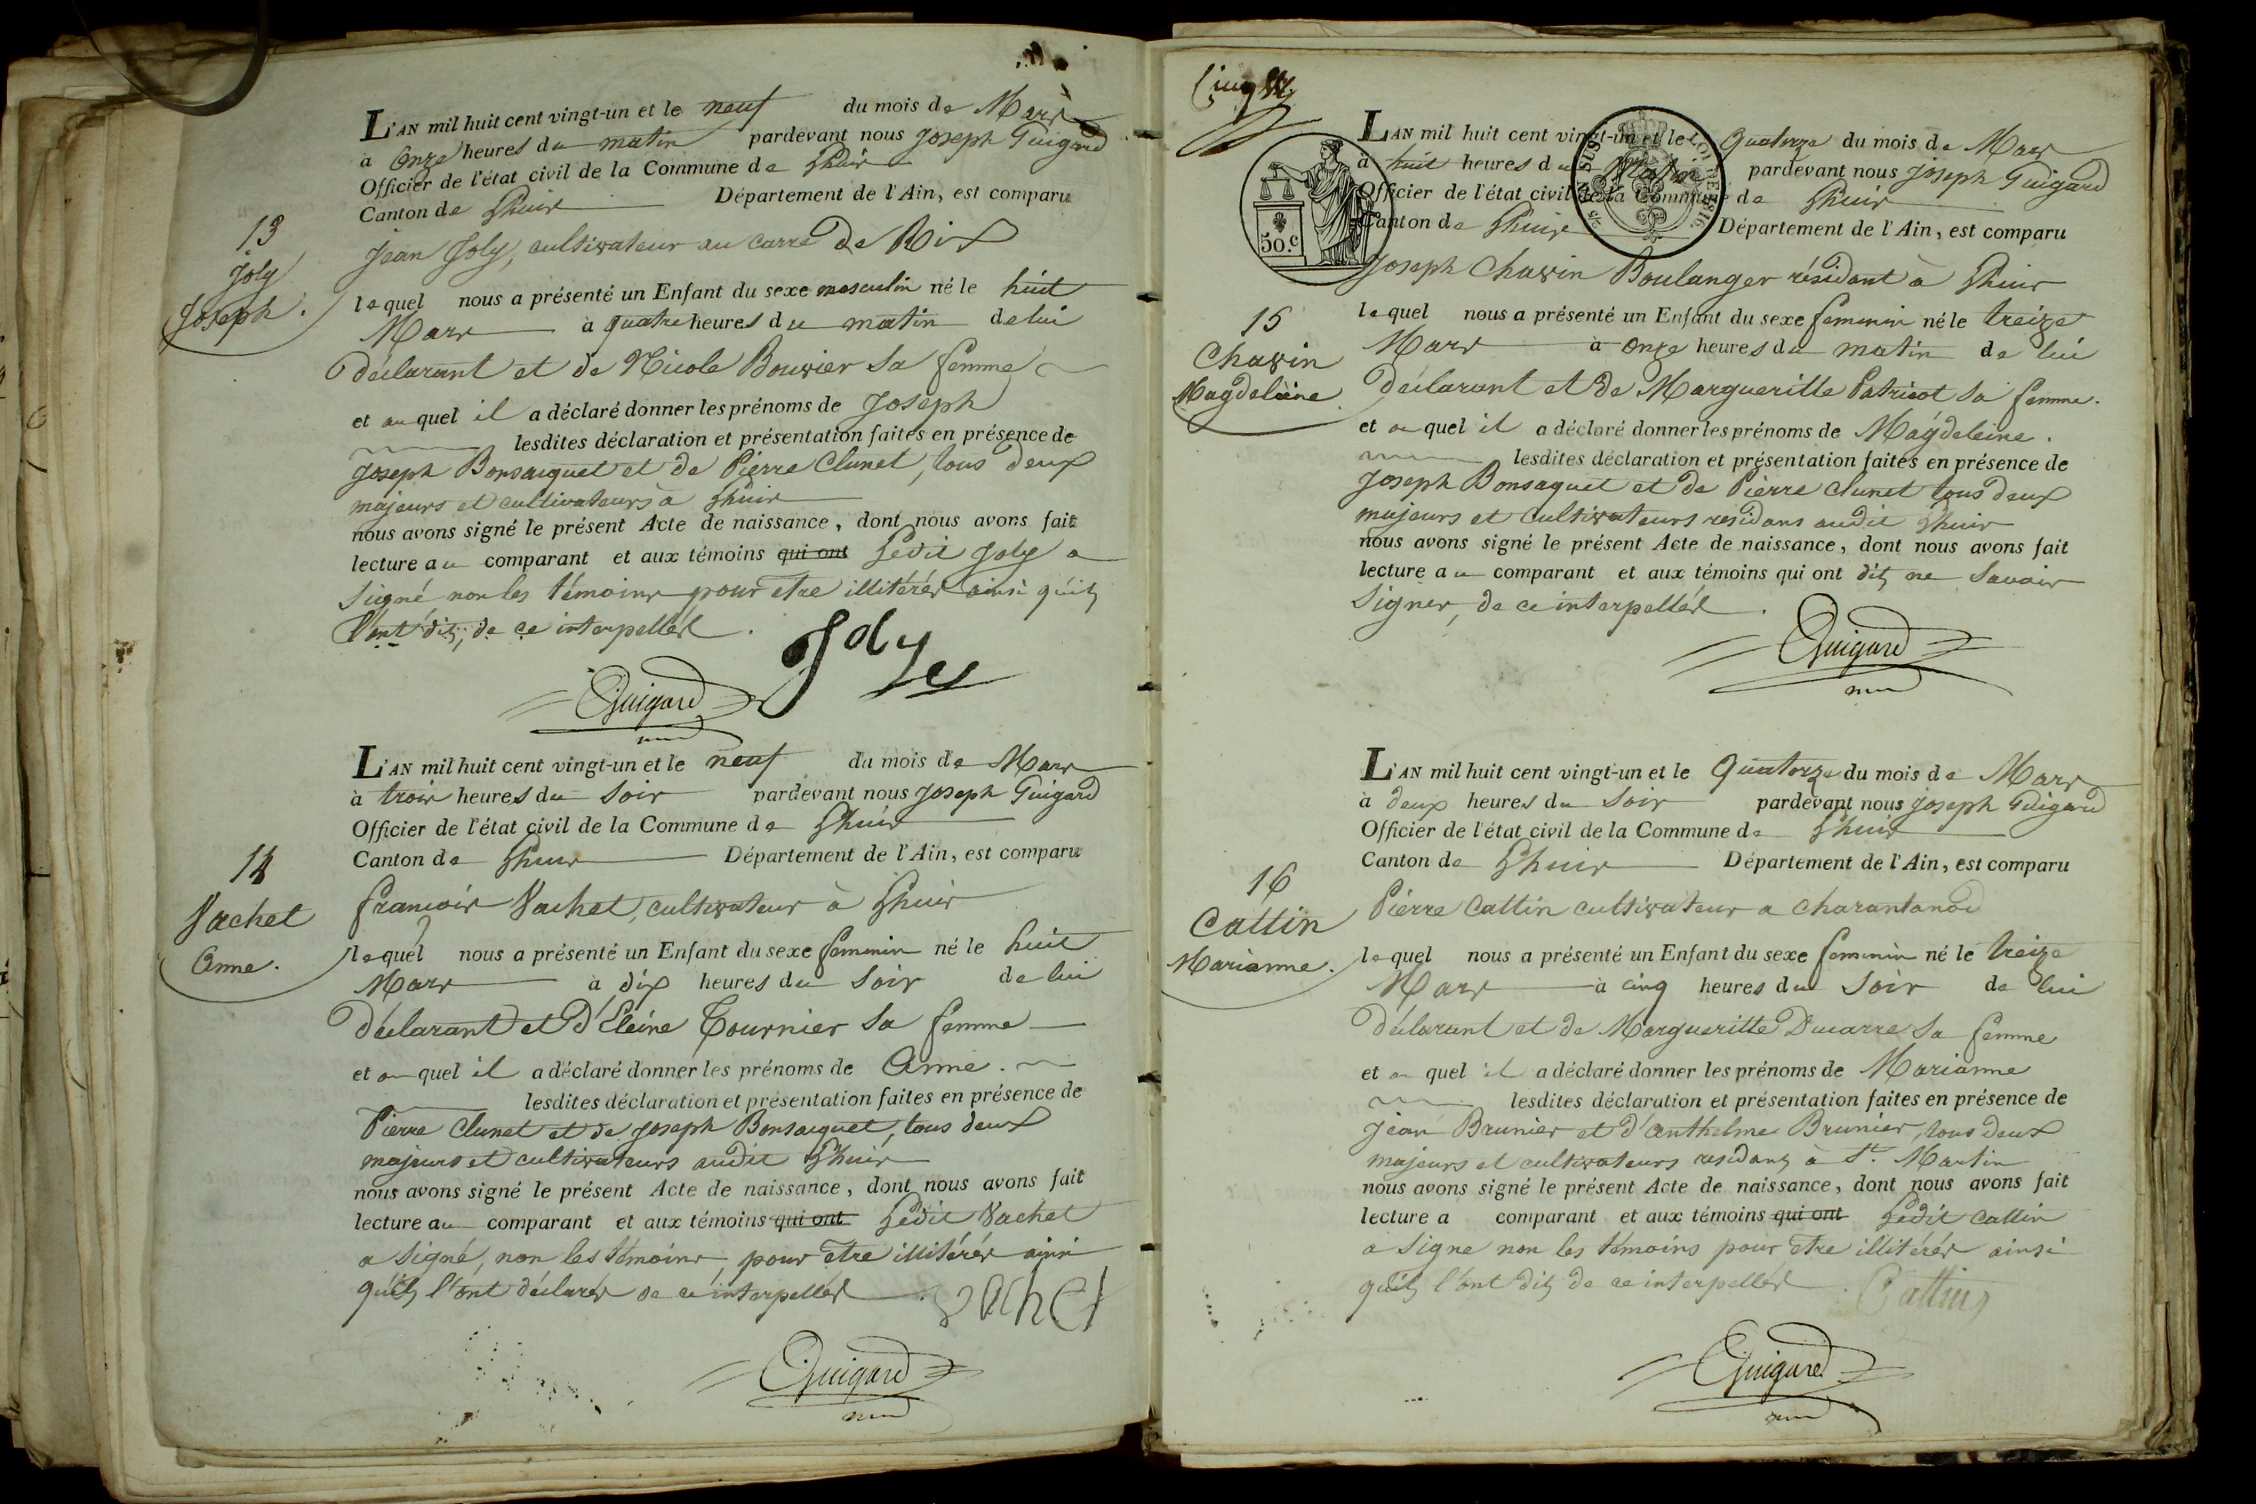 L'AN mil huit cent vingt-un et le neuf du mois de Mars
à Onze heures du matin pardevant nous Joseph Guigard
Officier de l'état civil de la Commune de Lhuis
Canton de Lhuis Département de l'Ain, est comparu
13
Joly
Joseph.
Jean Joly, cultivateur au carre de Rix
lequel nous a présenté un Enfant du sexe masculin né le huit
Mars à quatre heures du matin de lui
déclarant et de Nicole Bouvier sa femme
et au quel il a déclaré donner les prénoms de Joseph
lesdites déclaration et présentation faites en présence de
Joseph Bonsaquet et de Pierre Clunet, tous deux
majeurs et cultivateurs à Lhuis
nous avons signé le présent Acte de naissance, dont nous avons fait
lecture au comparant et aux témoins qui ont Ledit Joly a
signé non les témoins pour etre illitérés ainsi qu'ils
l'ont dit, de ce interpellés.
Joly
Guigard
L'AN mil huit cent vingt-un et le neuf du mois de Mars
à trois heures du soir pardevant nous Joseph Guigard
Officier de l'état civil de la Commune de Lhuis
Canton de Lhuis Département de l'Ain, est comparu
14
Vachet
Anne.
francois Vachet, cultivateur à Lhuis
lequel nous a présenté un Enfant du sexe feminin né le huit
Mars à dix heures du soir de lui
déclarant et d'Eleine Tournier sa femme
et au quel il a déclaré donner les prénoms de Anne.
lesdites déclaration et présentation faites en présence de
Pierre Clunet et de Joseph Bonsaquet, tous deux
majeurs et cultivateurs audit Lhuis
nous avons signé le présent Acte de naissance, dont nous avons fait
lecture au comparant et aux témoins qui ont Ledit Vachet
a signé, non les témoins, pour etre illitérés ainsi
qu'ils l'ont déclarés de ce interpellés
vachet
Guigard
Cinq
50.c
L'AN mil huit cent vingt-un et le Quatorze du mois de Mars
à huit heures du Matin pardevant nous Joseph Guigard
Officier de l'état civil de la Commune de Lhuis
Canton de Lhuis Département de l'Ain, est comparu
15
Chavin
Magdeleine
Joseph Chavin Boulanger résidant à Lhuis
lequel nous a présenté un Enfant du sexe feminin né le treize
Mars à Onze heures du matin de lui
déclarant et de Margueritte Patricot sa femme.
et au quel il a déclaré donner les prénoms de Magdeleine.
lesdites déclaration et présentation faites en présence de
Joseph Bonsaquet et de Pierre Clunet tous deux
majeurs et cultivateurs residans audit Lhuis
nous avons signé le présent Acte de naissance, dont nous avons fait
lecture au comparant et aux témoins qui ont dit ne savoir
signer, de ce interpellés.
Guigard
L'AN mil huit cent vingt-un et le Quatorze du mois de Mars
à deux heures du soir pardevant nous Joseph Guigard
Officier de l'état civil de la Commune de Lhuis
Canton de Lhuis Département de l'Ain, est comparu
16
Cattin
Marianne.
Pierre Cattin cultivateur a Charantanod
lequel nous a présenté un Enfant du sexe feminin né le treize
Mars à cinq heures du soir de lui
déclarant et de Margueritte Ducarre sa femme
et au quel il a déclaré donner les prénoms de Marianne
lesdites déclaration et présentation faites en présence de
Jean Brunier et d'anthelme Brunier, tous deux
majeurs et cultivateurs residans à St. Martin
nous avons signé le présent Acte de naissance, dont nous avons fait
lecture a comparant et aux témoins qui ont Ledit Cattin
a signe non les témoins pour etre illitérés ainsi
qu'ils l'ont dit de ce interpellés.
Cattin
Guigard